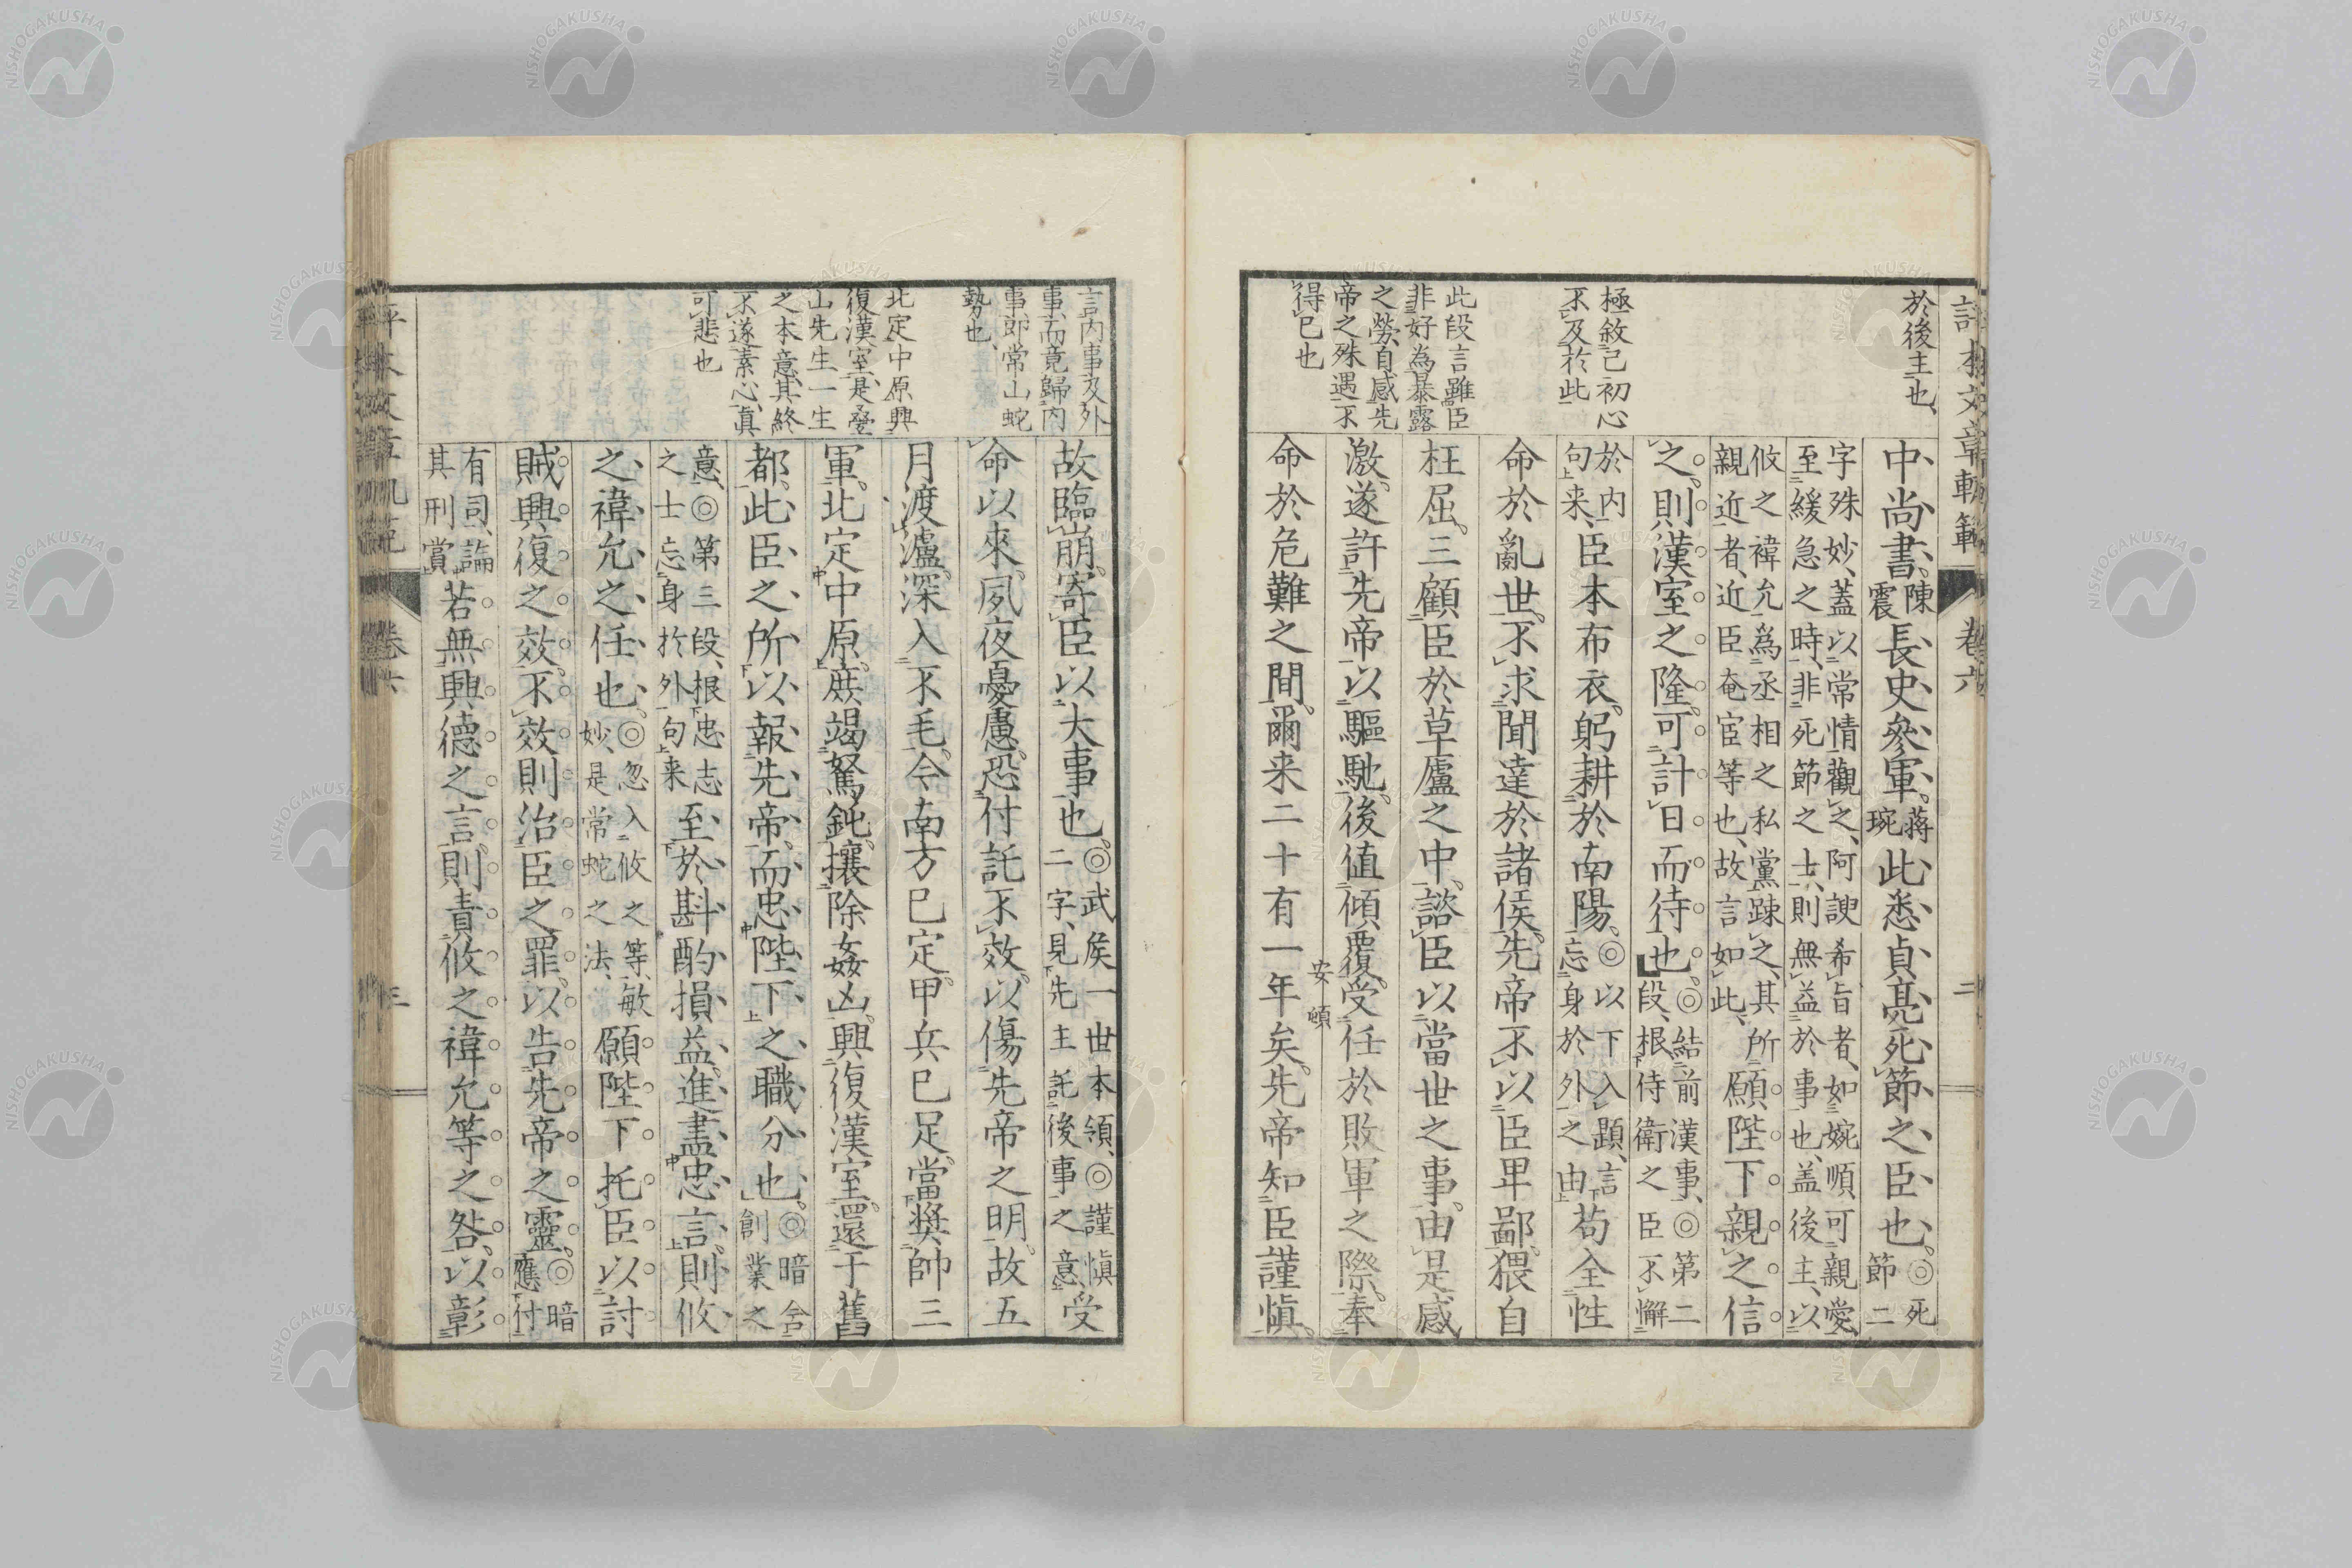 評林文章軌範
卷六
二
於後主也、
極敘己初心
不及於此
此段言雖臣
非好為暴露
之勞自感先
帝之殊遇不
得已也
中尚書。陳震長史參軍。蔣琬此悉貞亮死節之臣也。◎死節二
字殊妙、蓋以常情觀之、阿諛希旨者、如婉順可親愛
至緩急之時、非死節之士、則無益於事也、盖後主、以
攸之褘允為丞相之私黨踈之、其所
親近者、近臣奄宦等也、故言如此、
願陛下親之信
之。則漢室之隆可計日而待也。◎結前漢事、◎第二
段、根侍衛之臣不懈
於內句來、臣本布衣。躬耕於南陽。◎以下入題、言
忘身於外之由
苟全性
命於亂世。不求聞達於諸侯。先帝不以臣卑鄙。猥自
枉屈。三顧臣於草廬之中。諮臣以當世之事。由是感
激。遂許先帝以驅馳。後值傾覆。受任於敗軍之際。奉
安頓
命於危難之間。爾来二十有一年矣。先帝知臣謹愼。
言內事及外
事、而竟歸內
事、即常山蛇
勢也、
北定中原興
復漢室、是臺
山先生一生
之本意、其終
不遂素心、眞
可悲也
故臨崩。寄臣以大事也。◎武侯一世本領、◎謹愼
二字、見先主託後事之意、
受
命以來。夙夜憂慮。恐付託不效。以傷先帝之明。故五
月渡瀘。深入不毛。今南方已定。甲兵已足。當奬帥三
軍。北定中原。庶竭駑鈍。攘除姦凶。興復漢室。還于舊
都。此臣之所以報先帝。而忠陛下之職分也。◎暗合
創業之
意、◎第三段、根忠志
之士忘身於外句来
至於斟酌損益。進盡忠言。則攸
之褘允之任也。◎忽入攸之等、敏
妙、是常蛇之法、
願陛下托臣以討
賊興復之效。不效則治臣之罪。以告先帝之靈。◎暗
應付
有司、論
其刑賞
若無興德之言。則責攸之褘允等之咎。以彰
卷六
三